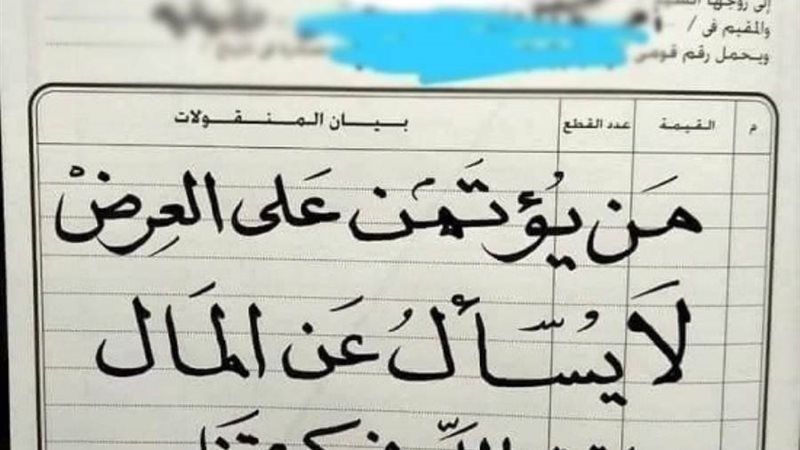 إلى زوجها السيد
والمقيم في /
ويحمل رقم قومى
م القيمة عدد القطع بيـــان المـنـقـــولات
مَن يُؤتَمَن عَلى العِرضْ
لَا يُسّأَلُ عَن المَال